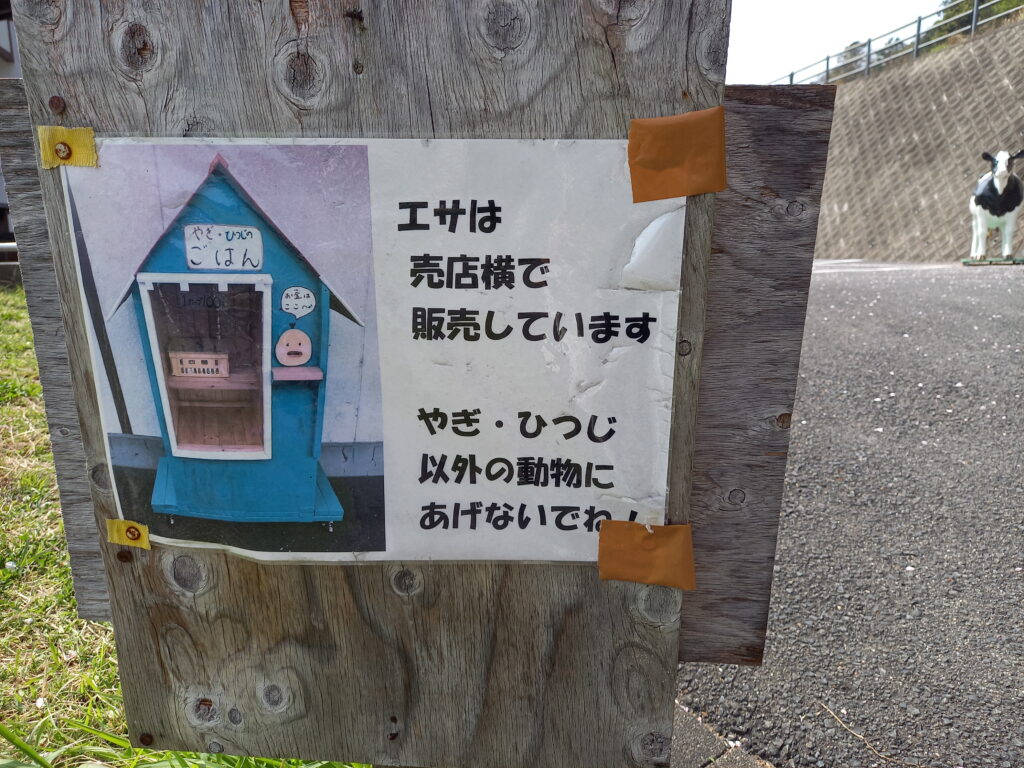 エサは
売店横で
販売しています
やぎ・ひつじ
以外の動物に
あげないでね！
やぎ・ひつじの
ごはん
お金は
ここへ